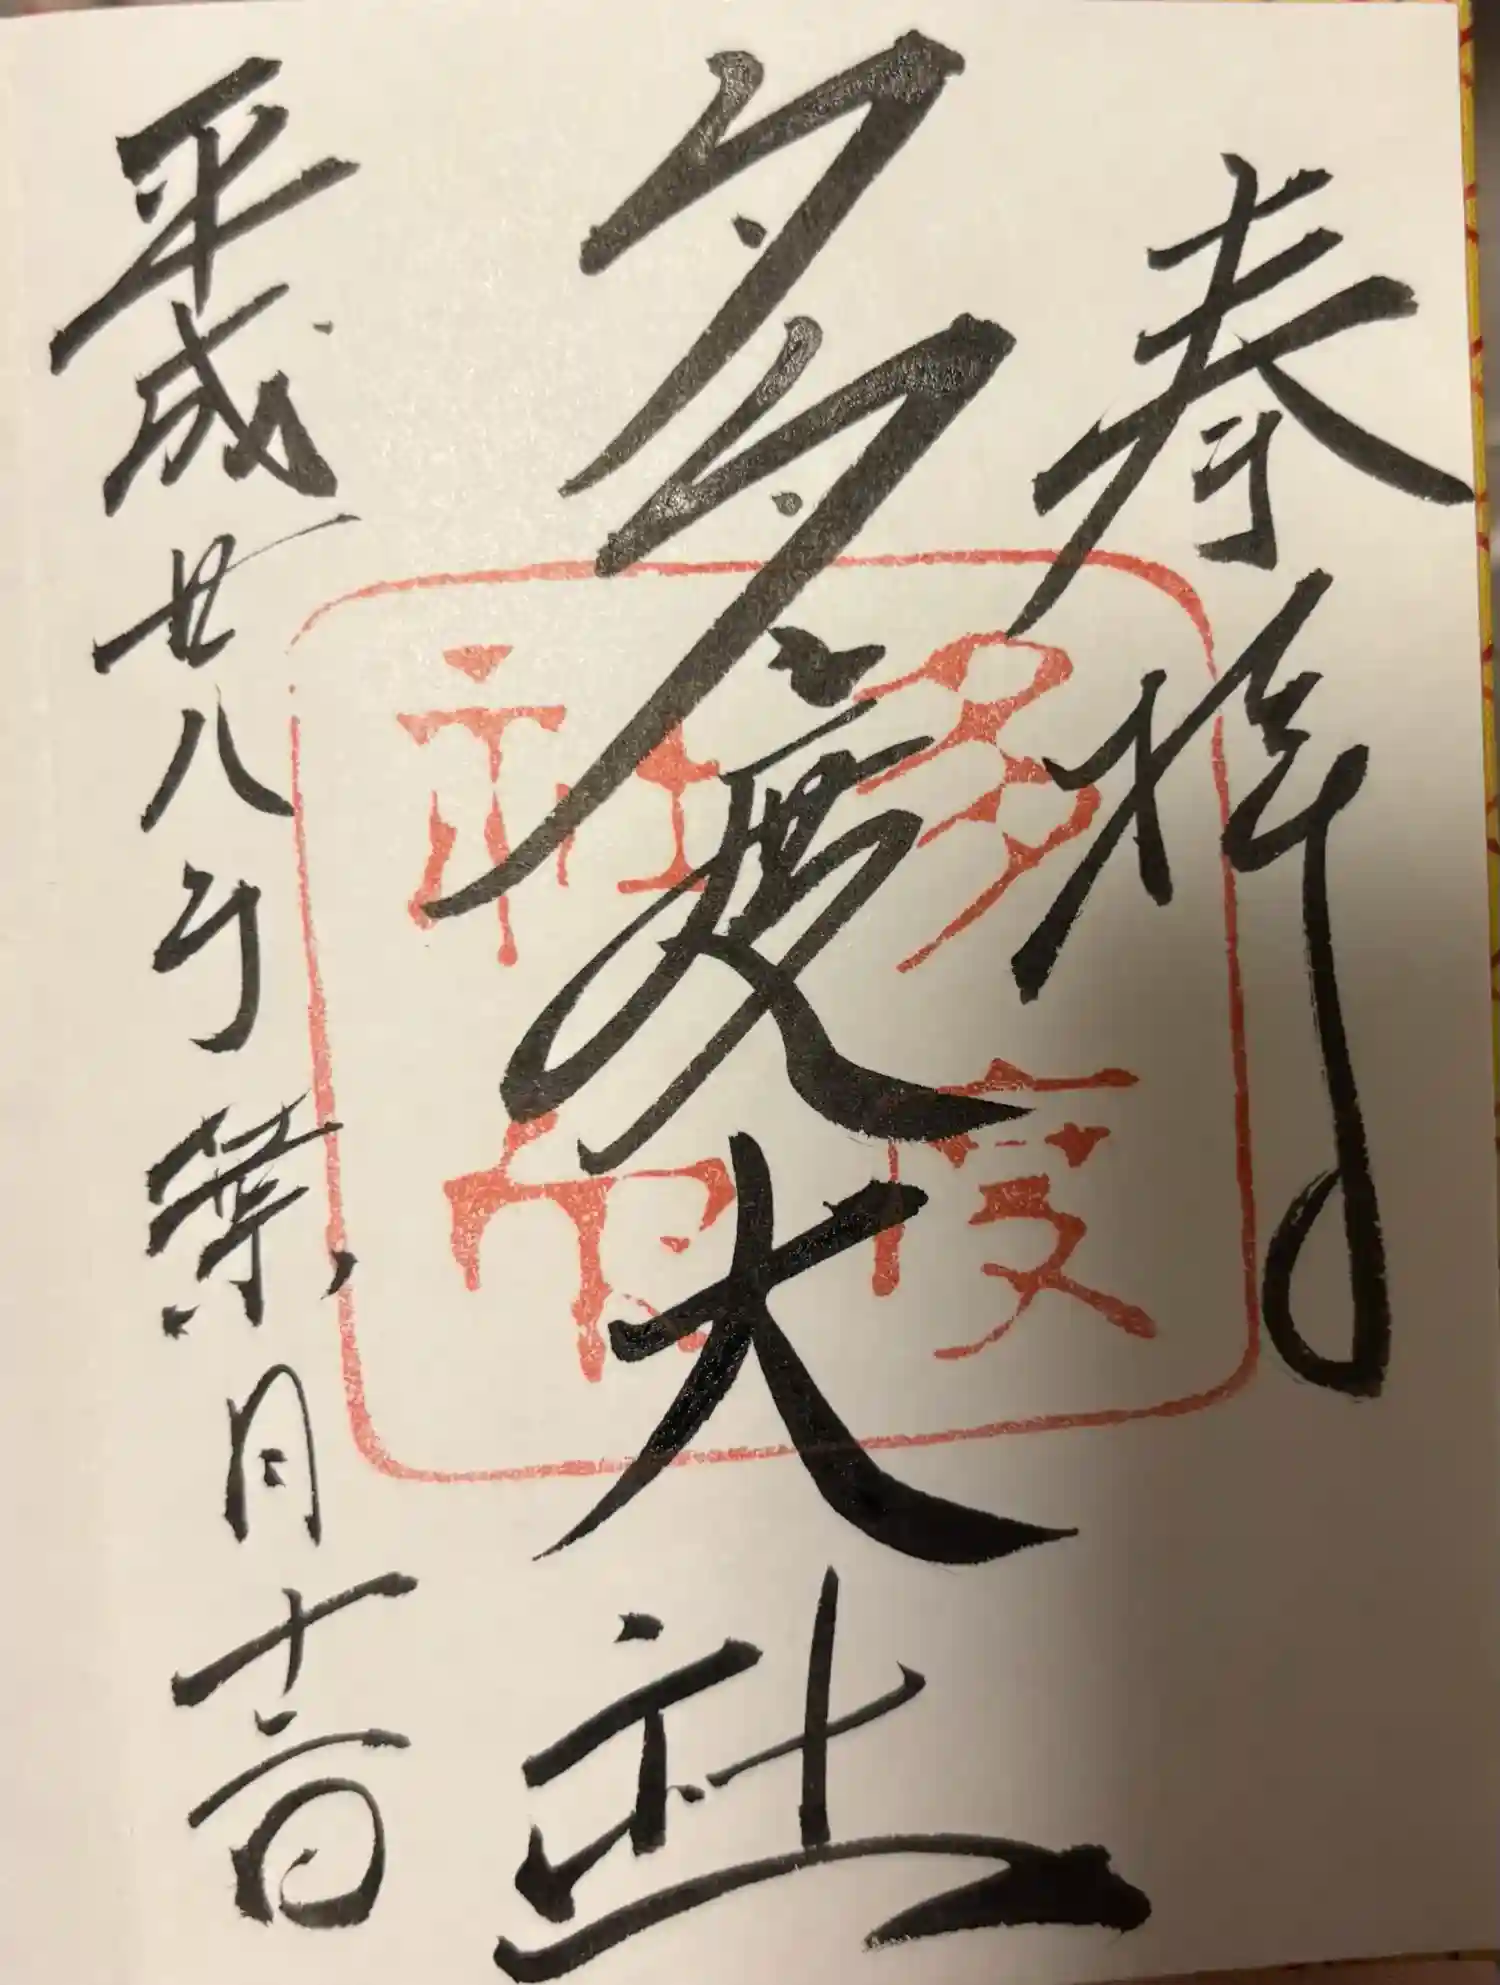 奉拝
多度大社
平成廿八年葉月十二日
多度
社